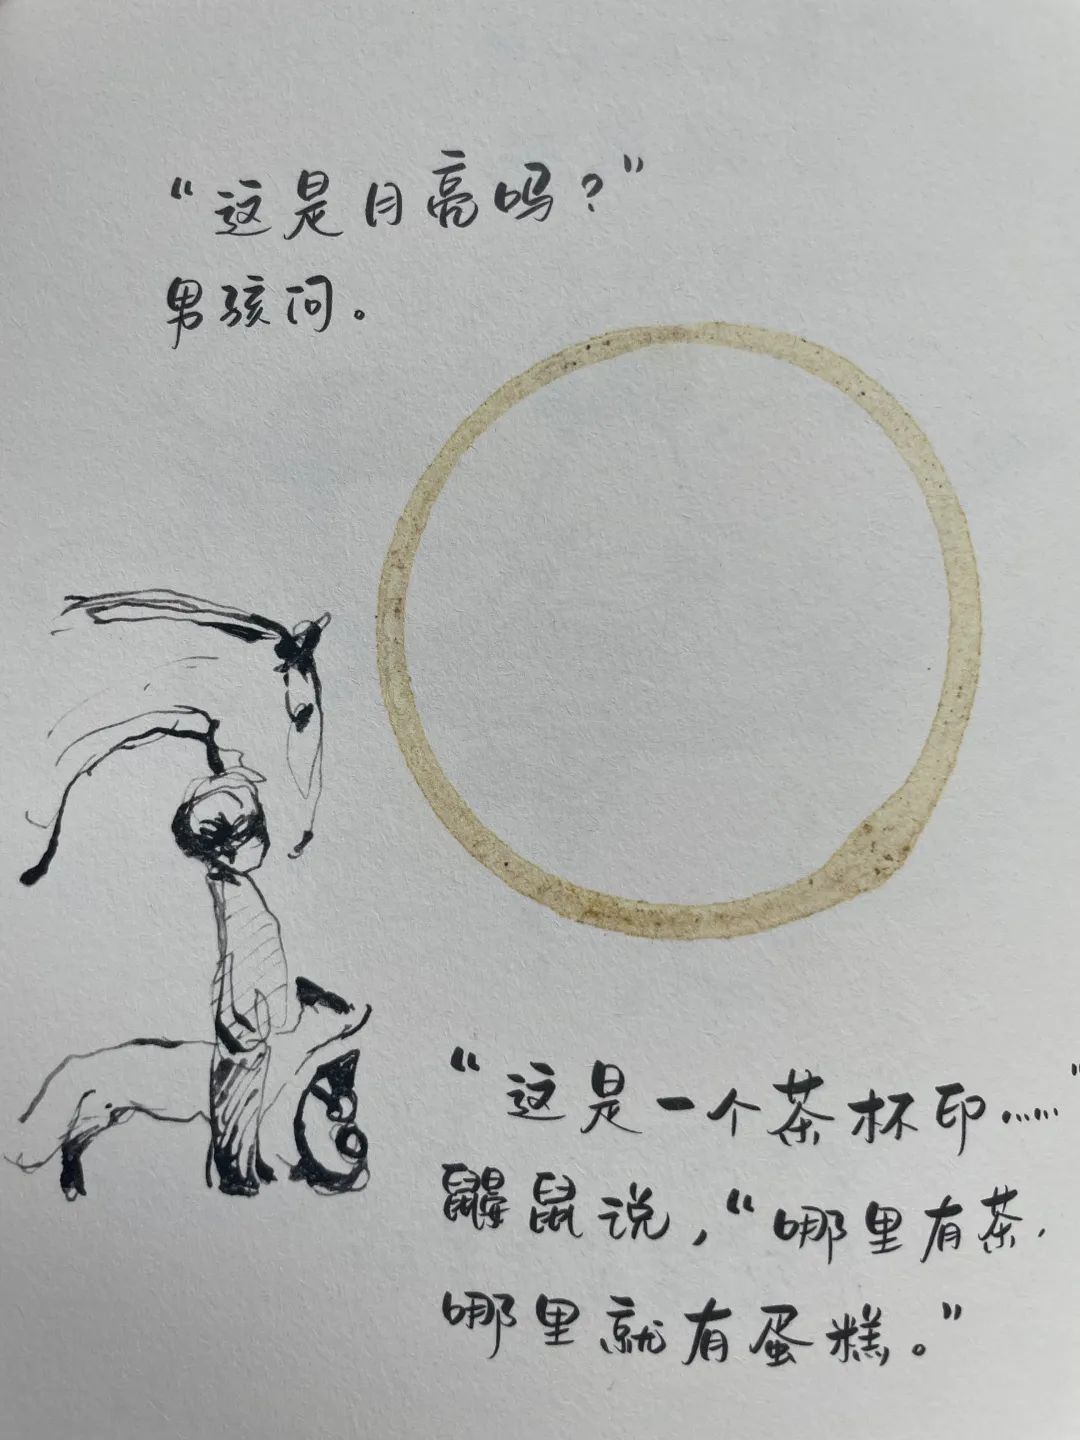 “这是月亮吗？”
男孩问。
“这是一个茶杯印……”
鼹鼠说，“哪里有茶，
哪里就有蛋糕。”